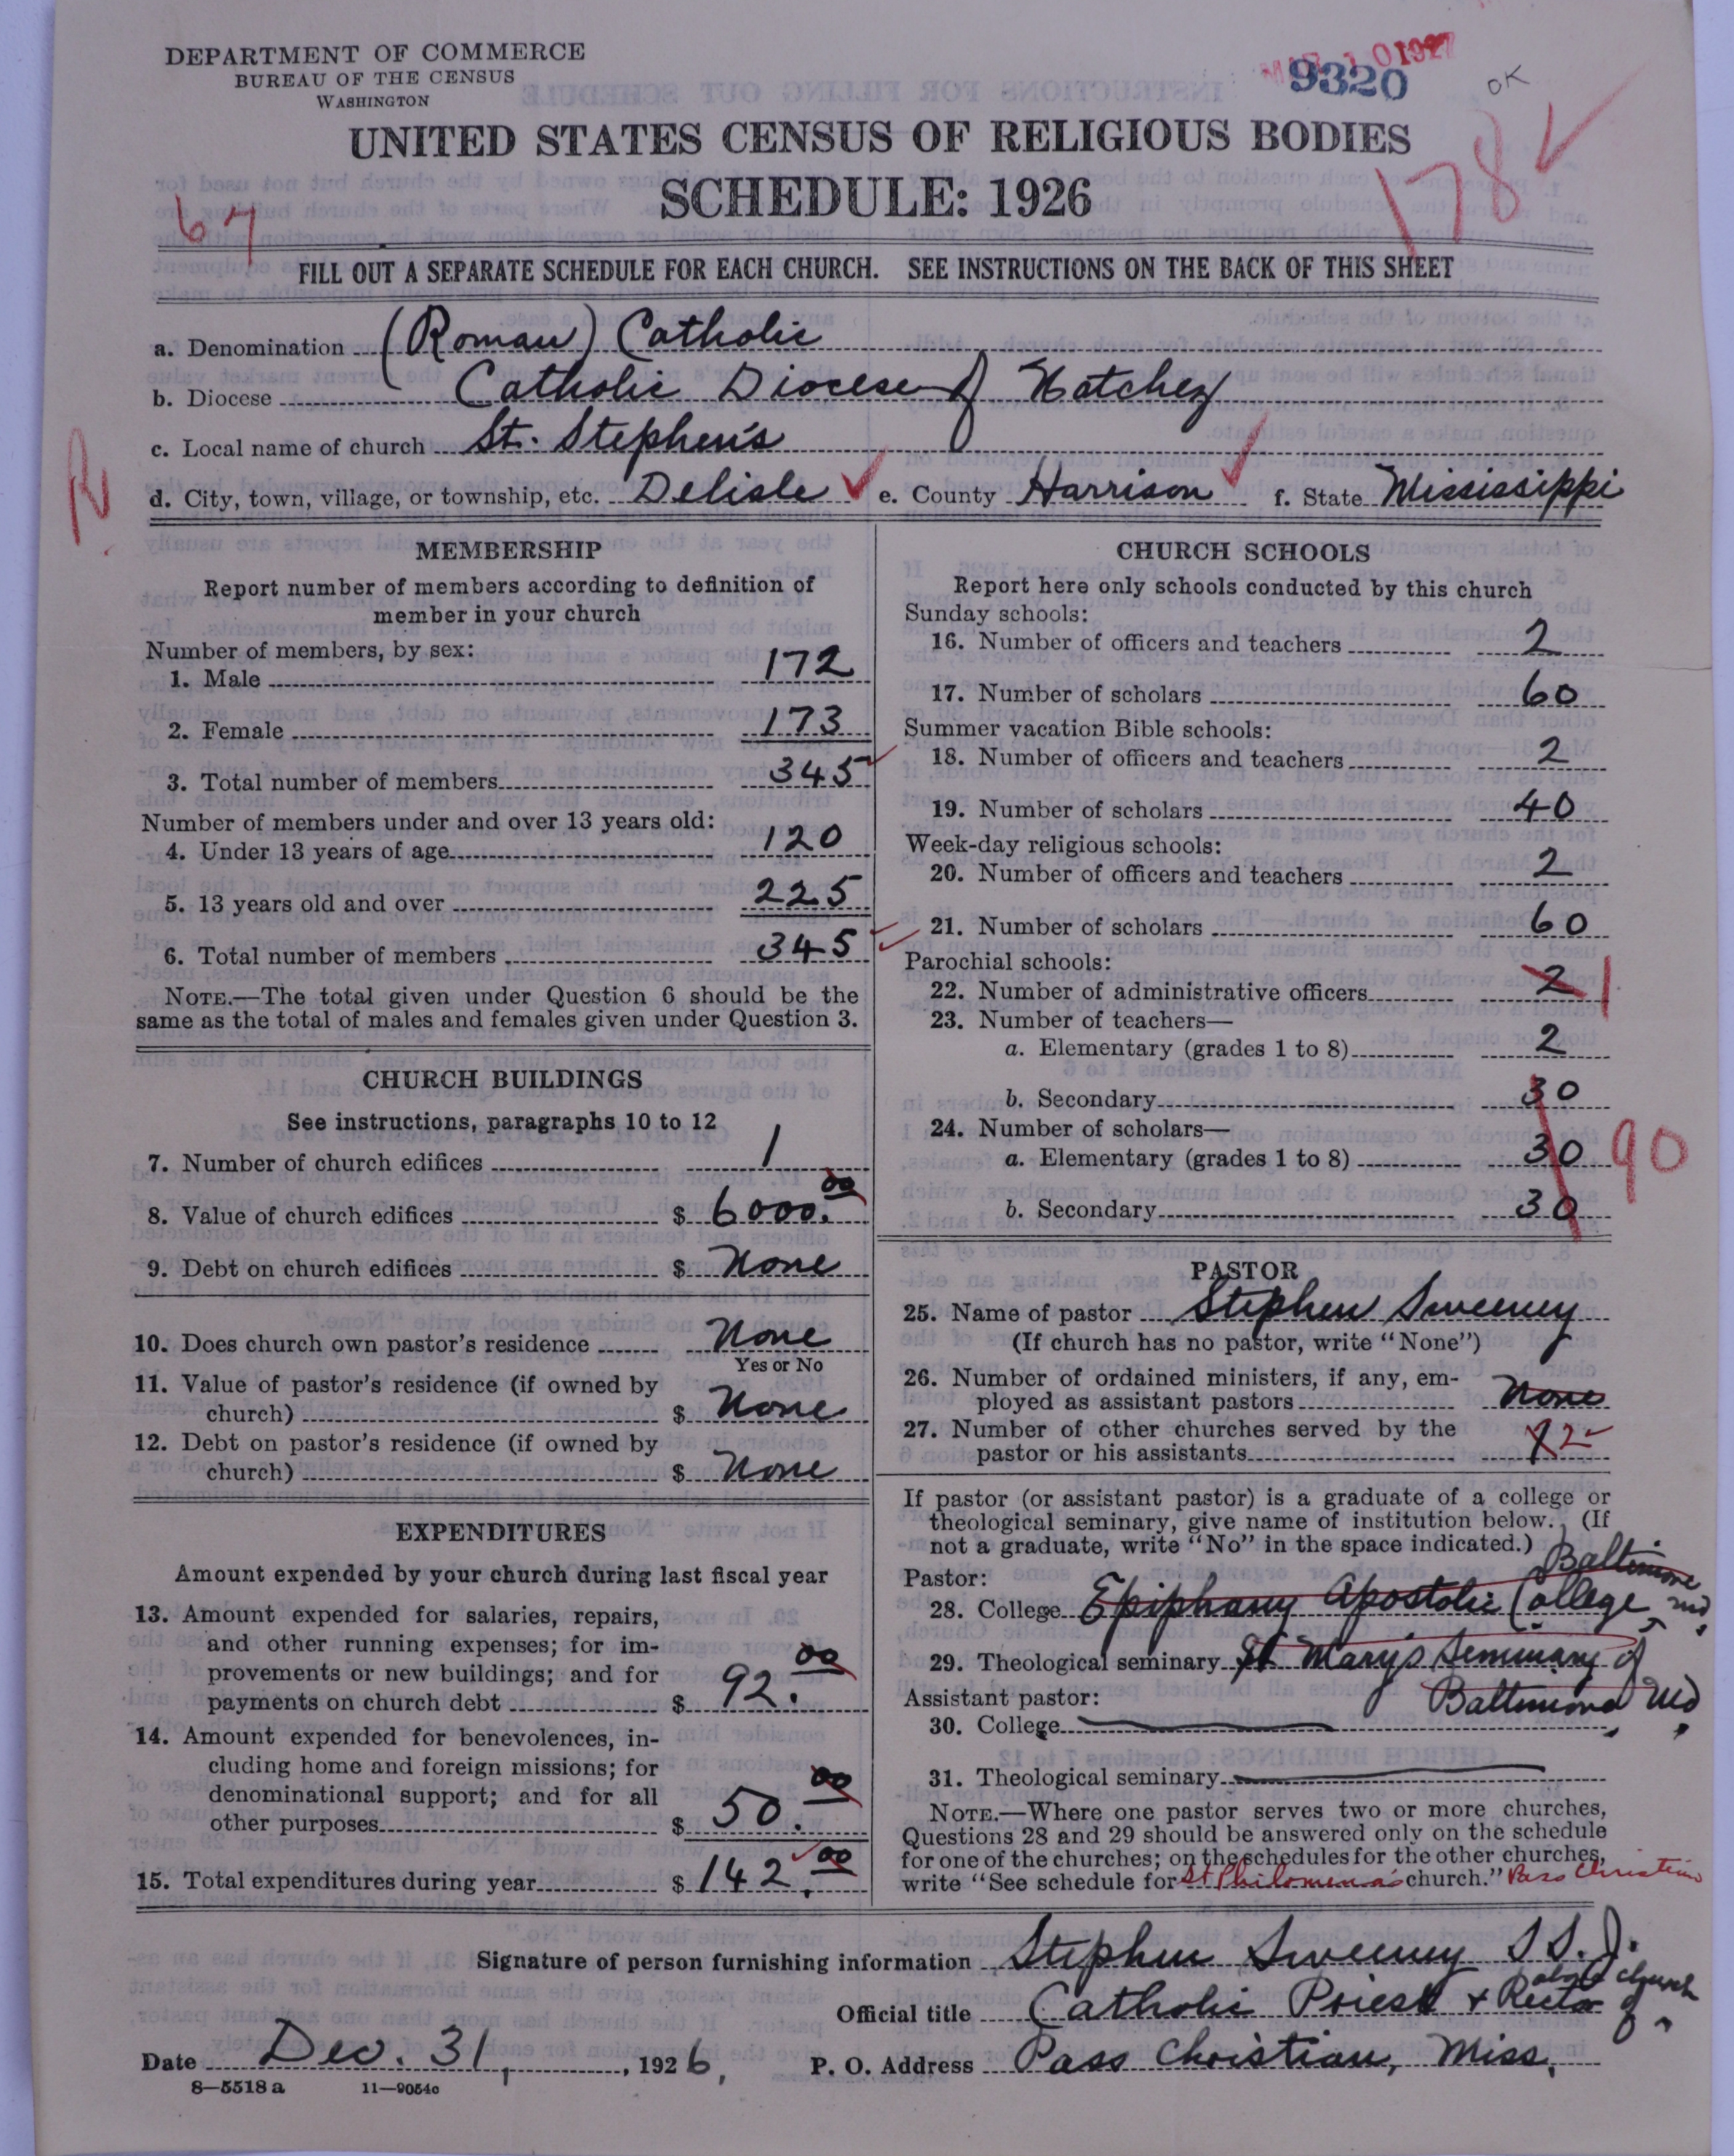 DEPARTMENT OF COMMERCE
BUREAU OF THE CENSUS
WASHINGTON
MAR 10 1927
9320
OK
UNITED STATES CENSUS OF RELIGIOUS BODIES
178 ✓
SCHEDULE: 1926
67
FILL OUT A SEPARATE SCHEDULE FOR EACH CHURCH. SEE INSTRUCTIONS ON THE BACK OF THIS SHEET
a. Denomination (Roman) Catholic
b. Diocese Catholic Diocese of Natchez
c. Local name of church St. Stephen's
R
d. City, town, village, or township, etc. Delisle ✓ e. County Harrison ✓ f. State Mississippi
MEMBERSHIP
Report number of members according to definition of
member in your church
Number of members, by sex:
1. Male 172
2. Female 173
3. Total number of members 345 ✓
Number of members under and over 13 years old:
4. Under 13 years of age 120
5. 13 years old and over 225
6. Total number of members 345 ✓
NOTE.—The total given under Question 6 should be the
same as the total of males and females given under Question 3.
CHURCH BUILDINGS
See instructions, paragraphs 10 to 12
7. Number of church edifices 1
8. Value of church edifices $ 6000.00
9. Debt on church edifices $ None
10. Does church own pastor's residence None
Yes or No
11. Value of pastor's residence (if owned by
church) $ None
12. Debt on pastor's residence (if owned by
church) $ None
EXPENDITURES
Amount expended by your church during last fiscal year
13. Amount expended for salaries, repairs,
and other running expenses; for im-
provements or new buildings; and for
payments on church debt $ 92.00
14. Amount expended for benevolences, in-
cluding home and foreign missions; for
denominational support; and for all
other purposes $ 50.00
15. Total expenditures during year $ 142.00
CHURCH SCHOOLS
Report here only schools conducted by this church
Sunday schools:
16. Number of officers and teachers 2
17. Number of scholars 60
Summer vacation Bible schools:
18. Number of officers and teachers 2
19. Number of scholars 40
Week-day religious schools:
20. Number of officers and teachers 2
21. Number of scholars 60
Parochial schools:
22. Number of administrative officers 2 1
23. Number of teachers—
a. Elementary (grades 1 to 8) 2
b. Secondary 30
24. Number of scholars—
a. Elementary (grades 1 to 8) 30 90
b. Secondary 30
PASTOR
25. Name of pastor Stephen Sweeney
(If church has no pastor, write "None")
26. Number of ordained ministers, if any, em-
ployed as assistant pastors None
27. Number of other churches served by the
pastor or his assistants 2
If pastor (or assistant pastor) is a graduate of a college or
theological seminary, give name of institution below. (If
not a graduate, write "No" in the space indicated.)
Pastor: Baltimore
28. College Epiphany Apostolic College, Md.
29. Theological seminary St Mary's Seminary of
Assistant pastor: Baltimore Md
30. College
31. Theological seminary
NOTE.—Where one pastor serves two or more churches,
Questions 28 and 29 should be answered only on the schedule
for one of the churches; on the schedules for the other churches,
write "See schedule for St Philomena's church." Pass Christian
Signature of person furnishing information Stephen Sweeney S.S.J.
Official title Catholic Priest & Rector of above church
Date Dec. 31, 1926, P. O. Address Pass Christian, Miss.
8—5518 a 11—9054c